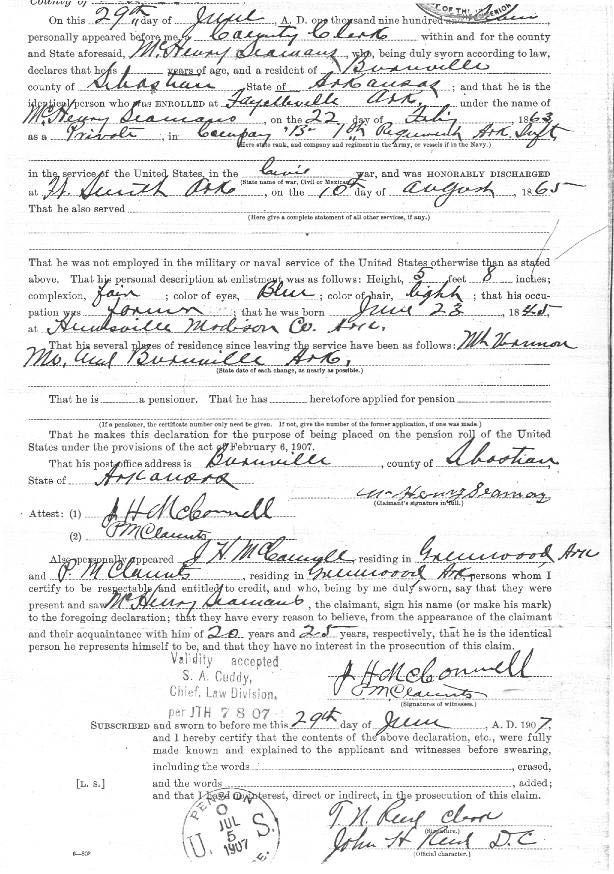 County of
On this 29th day of June, A. D. one thousand nine hundred
personally appeared before me, County Clerk within and for the county
and State aforesaid, McHenry Seamans, who, being duly sworn according to law,
declares that he is years of age, and a resident of Burnville
county of Sebastian, State of Arkansas; and that he is the
identical person who was ENROLLED at Fayetteville Ark, under the name of
McHenry Seamans, on the 22 day of, 1863,
as a Private, in Company "B" 1st Regiment Ark
(Here state rank, and company and regiment in the Army, or vessels if in the Navy.)
in the service of the United States, in the Civil war, and was HONORABLY DISCHARGED
(State name of war, Civil or Mexican.)
at Ft Smith Ark, on the 10th day of August, 1865
That he also served
(Here give a complete statement of all other services, if any.)
That he was not employed in the military or naval service of the United States otherwise than as stated
above. That his personal description at enlistment was as follows: Height, 5 feet 8 inches;
complexion, fair; color of eyes, Blue; color of hair, light; that his occu-
pation was farmer; that he was born June 23, 1845,
at Huntsville Madison Co. Ark.
That his several places of residence since leaving the service have been as follows: Mt Vernon
Mo. and Burnville Ark.
(State date of each change, as nearly as possible.)
That he is a pensioner. That he has heretofore applied for pension
(If a pensioner, the certificate number only need be given. If not, give the number of the former application, if one was made.)
That he makes this declaration for the purpose of being placed on the pension roll of the United
States under the provisions of the act of February 6, 1907.
That his post-office address is Burnville, county of Sebastian
State of Arkansas
McHenry Seamans
(Claimant's signature in full.)
Attest: (1) J H McConnell
(2) P M Claunts
Also personally appeared J H McConnell, residing in Greenwood, Ark
and P. M Claunts, residing in Greenwood Ark, persons whom I
certify to be respectable and entitled to credit, and who, being by me duly sworn, say that they were
present and saw McHenry Seamans, the claimant, sign his name (or make his mark)
to the foregoing declaration; that they have every reason to believe, from the appearance of the claimant
and their acquaintance with him of 20 years and 25 years, respectively, that he is the identical
person he represents himself to be, and that they have no interest in the prosecution of this claim.
Validity accepted
S. A. Cuddy,
Chief, Law Division,
per JTH 7 8 07
J H McConnell
P M Claunts
(Signatures of witnesses.)
SUBSCRIBED and sworn to before me this 29th day of June, A. D. 1907,
and I hereby certify that the contents of the above declaration, etc., were fully
made known and explained to the applicant and witnesses before swearing,
including the words, erased,
[L. S.] and the words, added;
and that I have no interest, direct or indirect, in the prosecution of this claim.
PENSION
O
JUL
5
1907
U. S.
E.
T. N. Clerk
(Signature.)
John H D. C
(Official character.)